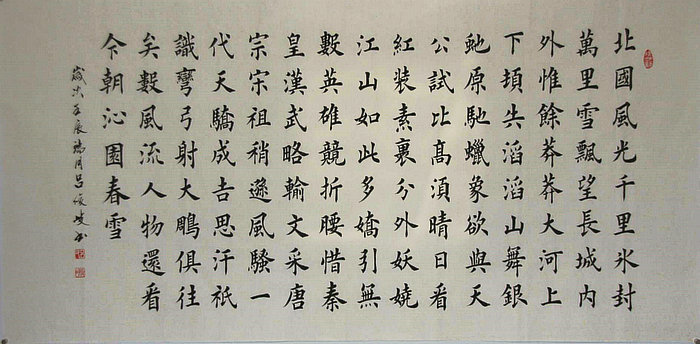 北國風光千里氷封
萬里雪飄望長城内
外惟餘莽莽大河上
下頓失滔滔山舞銀
虵原馳蠟象欲與天
公試比髙須晴日看
紅装素裹分外妖嬈
江山如此多嬌引無
數英雄競折腰惜秦
皇漢武略輸文采唐
宗宋祖稍遜風騷一
代天驕成吉思汗祇
識彎弓射大鵰俱往
矣數風流人物還看
今朝沁園春雪
歲次壬辰瑞月吕